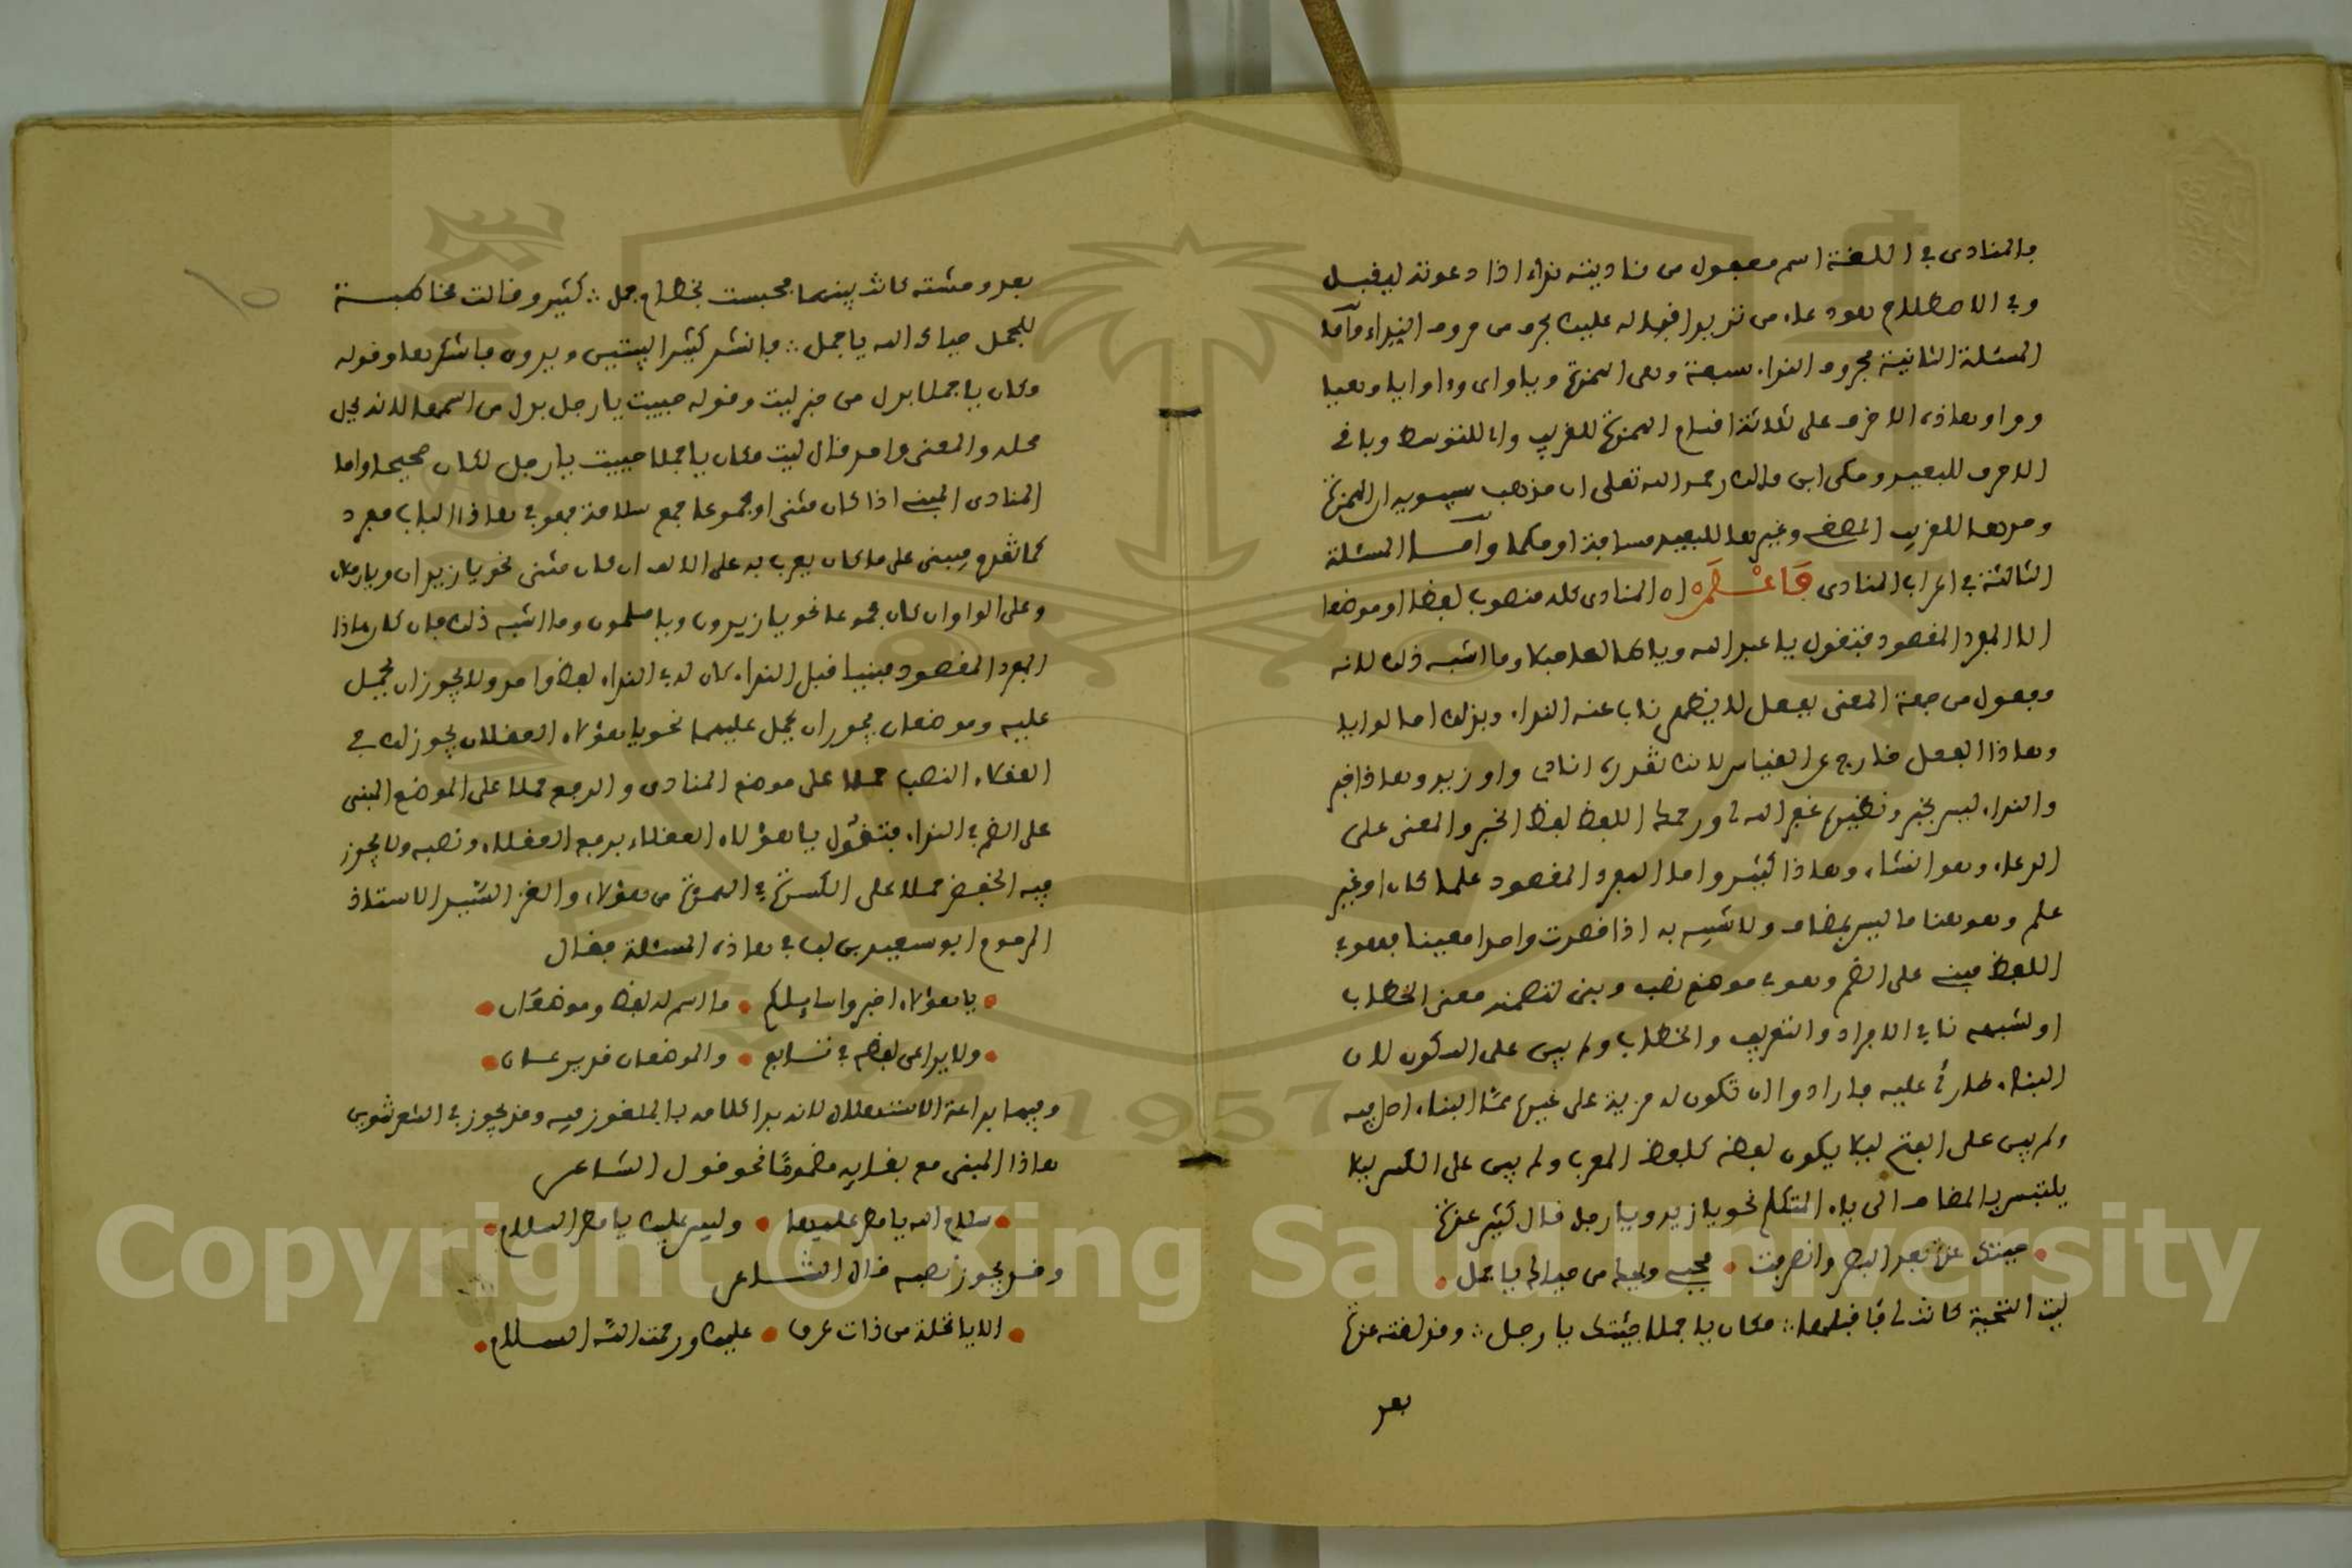 فالمنادى في اللغة اسم مفعول من ناديته نداء اذا دعوته ليقبل
وفي الاصطلاح هو دعاء من تريد اقباله عليك بحرف من حروف النداء وأما
المسئلة الثانية فحروف النداء سبعة وهي الهمزة ويا واى وءا وايا وهيا
ووا وهاذه الاحرف على ثلاثة اقسام الهمزة للقريب واى للمتوسط وباقي
الاحرف للبعيد وحكى ابن مالك رحمه الله تعلى ان مذهب سيبويه ان الهمزة
وحدها للقريب المصغي وغيرها للبعيد مسافة او حكما وأما المسئلة
الثالثة في اعراب المنادى فاعلم ان المنادى كله منصوب لفظا او موضعا
الا المفرد المقصود فتقول يا عبد الله ويا طالعا جبلا وما اشبه ذلك لانه
مفعول من جهة المعنى بفعل لا يظهر ناب عنه النداء وبذلك امالوا يا
وهاذا الفعل خارج عن القياس لانك تقدره انادي او ازيد وهاذا خبر
والنداء ليس بخبر ونظيره غفر الله لي ورحمك اللفظ لفظ الخبر والمعنى على
الدعاء وهو انشاء وهاذا كثير واما المفرد المقصود علما كان او غير
علم وهو هنا ما ليس بمضاف ولا شبيه به اذا قصدت واحدا معينا فهو في
اللفظ مبني على الضم وهو في موضع نصب وبني لتضمنه معنى الخطاب
او لشبهه نا في الافراد والتعريف والخطاب ولم يبن على السكون لان
البناء طارئ عليه فارادوا ان تكون له مزية على غيره ممّا البناء اصل فيه
ولم يبن على الفتح ليلا يكون لفظه كلفظ المعرب ولم يبن على الكسر ليلا
يلتبس بالمضاف الى ياء المتكلم نحو يا زيد ويا رجل قال كثير عزة
حيتك عزة بعد البصر وانصرفت • فحي ويحك من حياك يا جمل
ليت التحية كانت لي فاقبلها ∴ مكان يا جملا حييت يا رجل ∴ وقد لقته عزة
بعد
بعد ومشته كانت بينهما فحبست بخطام جمل ∴ كثير وقالت مخاطبة
للجمل حياك الله يا جمل ∴ فانشد كثير البيتين ويروى فاشكرها وقوله
وكان يا جملا بدل من خبر ليت وقوله حييت يا رجل بدل من اسمها لانه يحل
محله والمعنى واحد قال ليت مكان يا جملا حييت يا رجل لكان صحيحا واما
المنادى المبني اذا كان مثنى او مجموعا جمع سلامة فهو في هاذا الباب مفرد
كما تقدم ويبنى على ما كان يعرب به على الالف ان كان مثنى نحو يا زيدان ويا رجلان
وعلى الواو ان كان مجموعا نحو يا زيدون ويا مسلمون وما اشبه ذلك فان كان هاذا
المفرد المقصود مبنيا قبل النداء كان له في النداء لفظ واحد ولا يجوز ان يحمل
عليه وموضعان يجوز ان يحمل عليهما نحو يا هؤلاء العقلاء يجوز لك في
العقلاء النصب حملا على موضع المنادى والرفع حملا على الموضع المبني
على الضم في النداء فتقول يا هؤلاء العقلاء برفع العقلاء ونصبه ولا يجوز
فيه الخفض حملا على الكسرة في الهمزة من هؤلاء والغز الشيخ الاستاذ
المرحوم ابو سعيد بن لب في هاذه المسئلة فقال
• يا هؤلاء اخبروا سايلكم • ما اسم له لفظ وموضعان •
• ولا يراعى لفظه في تابع • والموضعان قد يرعيان •
وفيهما براعة الاستهلال لانه بدا كلامه بالملغوز فيه وقد يجوز في الشعر تنوين
هاذا المبنى مع بقايه مضمومًا نحو قول الشاعر
• سلام الله يا مطر عليها • وليس عليك يا مطر السلام •
وقد يجوز نصبه قال الشاعر
• الا يا نخلة من ذات عرق • عليك ورحمة الله السلام •
Copyright © King Saud University
1957